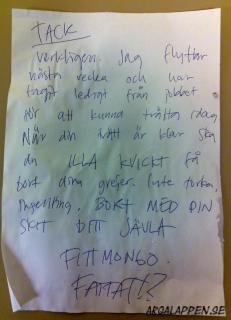 TACK
verkligen. Jag flyttar
nästa vecka och har
tagit ledigt från jobbet
för att kunna tvätta idag.
När din tvätt är klar ska
du ILLA KVICKT få
bort dina grejer. Inte torka.
Ingenting. BORT MED DIN
SKIT DITT JÄVLA
FITTMONGO.
FATTAT!?
ARGALAPPEN.SE